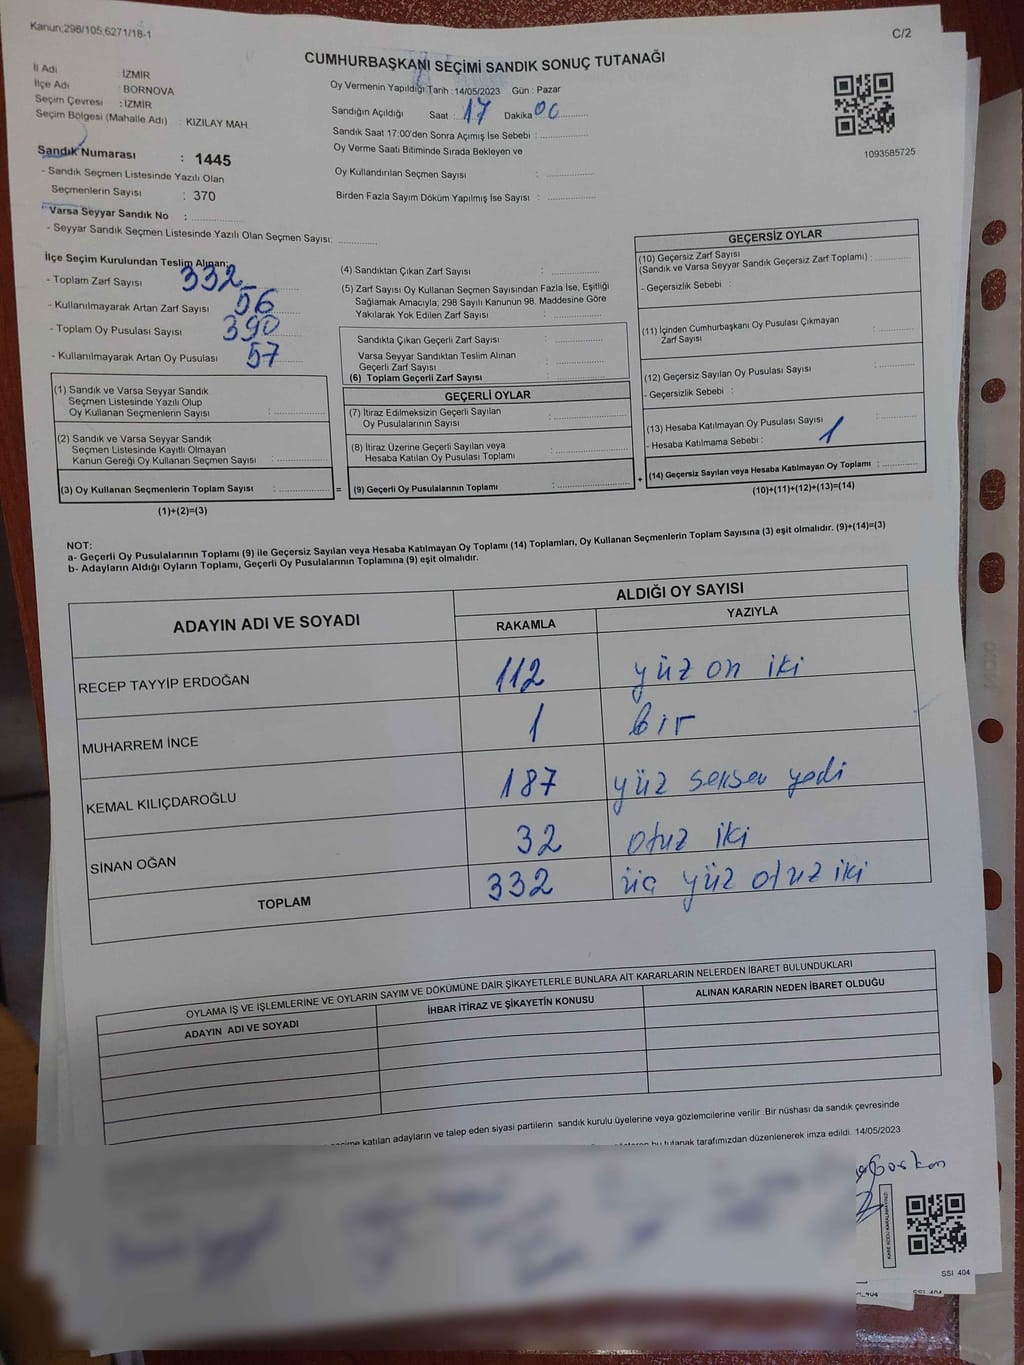 Kanun;298/105,6271/18-1
C/2
CUMHURBAŞKANI SEÇİMİ SANDIK SONUÇ TUTANAĞI
İl Adı : İZMİR
İlçe Adı : BORNOVA
Seçim Çevresi : İZMİR
Seçim Bölgesi (Mahalle Adı) : KIZILAY MAH
Oy Vermenin Yapıldığı Tarih : 14/05/2023 Gün : Pazar
Sandığın Açıldığı Saat : 17 Dakika 00
Sandık Saat 17:00'den Sonra Açımış İse Sebebi :
Oy Verme Saati Bitiminde Sırada Bekleyen ve
Oy Kullandırılan Seçmen Sayısı :
Birden Fazla Sayım Döküm Yapılmış İse Sayısı :
1093585725
Sandık Numarası : 1445
- Sandık Seçmen Listesinde Yazılı Olan
Seçmenlerin Sayısı : 370
Varsa Seyyar Sandık No :
- Seyyar Sandık Seçmen Listesinde Yazılı Olan Seçmen Sayısı:
İlçe Seçim Kurulundan Teslim Alınan:
- Toplam Zarf Sayısı 332
- Kullanılmayarak Artan Zarf Sayısı 56
- Toplam Oy Pusulası Sayısı 390
- Kullanılmayarak Artan Oy Pusulası 57
(1) Sandık ve Varsa Seyyar Sandık
Seçmen Listesinde Yazılı Olup
Oy Kullanan Seçmenlerin Sayısı :
(2) Sandık ve Varsa Seyyar Sandık
Seçmen Listesinde Kayıtlı Olmayan
Kanun Gereği Oy Kullanan Seçmen Sayısı :
(3) Oy Kullanan Seçmenlerin Toplam Sayısı : =
(1)+(2)=(3)
(4) Sandıktan Çıkan Zarf Sayısı :
(5) Zarf Sayısı Oy Kullanan Seçmen Sayısından Fazla İse, Eşitliği
Sağlamak Amacıyla; 298 Sayılı Kanunun 98. Maddesine Göre
Yakılarak Yok Edilen Zarf Sayısı :
Sandıkta Çıkan Geçerli Zarf Sayısı :
Varsa Seyyar Sandıktan Teslim Alınan
Geçerli Zarf Sayısı :
(6) Toplam Geçerli Zarf Sayısı :
GEÇERLİ OYLAR
(7) İtiraz Edilmeksizin Geçerli Sayılan
Oy Pusulalarının Sayısı :
(8) İtiraz Üzerine Geçerli Sayılan veya
Hesaba Katılan Oy Pusulası Toplamı :
(9) Geçerli Oy Pusulalarının Toplamı : +
GEÇERSİZ OYLAR
(10) Geçersiz Zarf Sayısı
(Sandık ve Varsa Seyyar Sandık Geçersiz Zarf Toplamı) :
- Geçersizlik Sebebi :
(11) İçinden Cumhurbaşkanı Oy Pusulası Çıkmayan
Zarf Sayısı :
(12) Geçersiz Sayılan Oy Pusulası Sayısı :
- Geçersizlik Sebebi :
(13) Hesaba Katılmayan Oy Pusulası Sayısı :
- Hesaba Katılmama Sebebi : 1
(14) Geçersiz Sayılan veya Hesaba Katılmayan Oy Toplamı :
(10)+(11)+(12)+(13)=(14)
NOT:
a- Geçerli Oy Pusulalarının Toplamı (9) ile Geçersiz Sayılan veya Hesaba Katılmayan Oy Toplamı (14) Toplamları, Oy Kullanan Seçmenlerin Toplam Sayısına (3) eşit olmalıdır. (9)+(14)=(3)
b- Adayların Aldığı Oyların Toplamı, Geçerli Oy Pusulalarının Toplamına (9) eşit olmalıdır.
ADAYIN ADI VE SOYADI
ALDIĞI OY SAYISI
RAKAMLA YAZIYLA
RECEP TAYYİP ERDOĞAN 112 yüz on iki
MUHARREM İNCE 1 bir
KEMAL KILIÇDAROĞLU 187 yüz seksen yedi
SİNAN OĞAN 32 otuz iki
TOPLAM 332 üç yüz otuz iki
OYLAMA İŞ VE İŞLEMLERİNE VE OYLARIN SAYIM VE DÖKÜMÜNE DAİR ŞİKAYETLERLE BUNLARA AİT KARARLARIN NELERDEN İBARET BULUNDUKLARI
ADAYIN ADI VE SOYADI
İHBAR İTİRAZ VE ŞİKAYETİN KONUSU
ALINAN KARARIN NEDEN İBARET OLDUĞU
katılan adayların ve talep eden siyasi partilerin sandık kurulu üyelerine veya gözlemcilerine verilir Bir nüshası da sandık çevresinde
bu tutanak tarafımızdan düzenlenerek imza edildi. 14/05/2023
KARE KODU KARALAMAYINIZ!
SSI 404